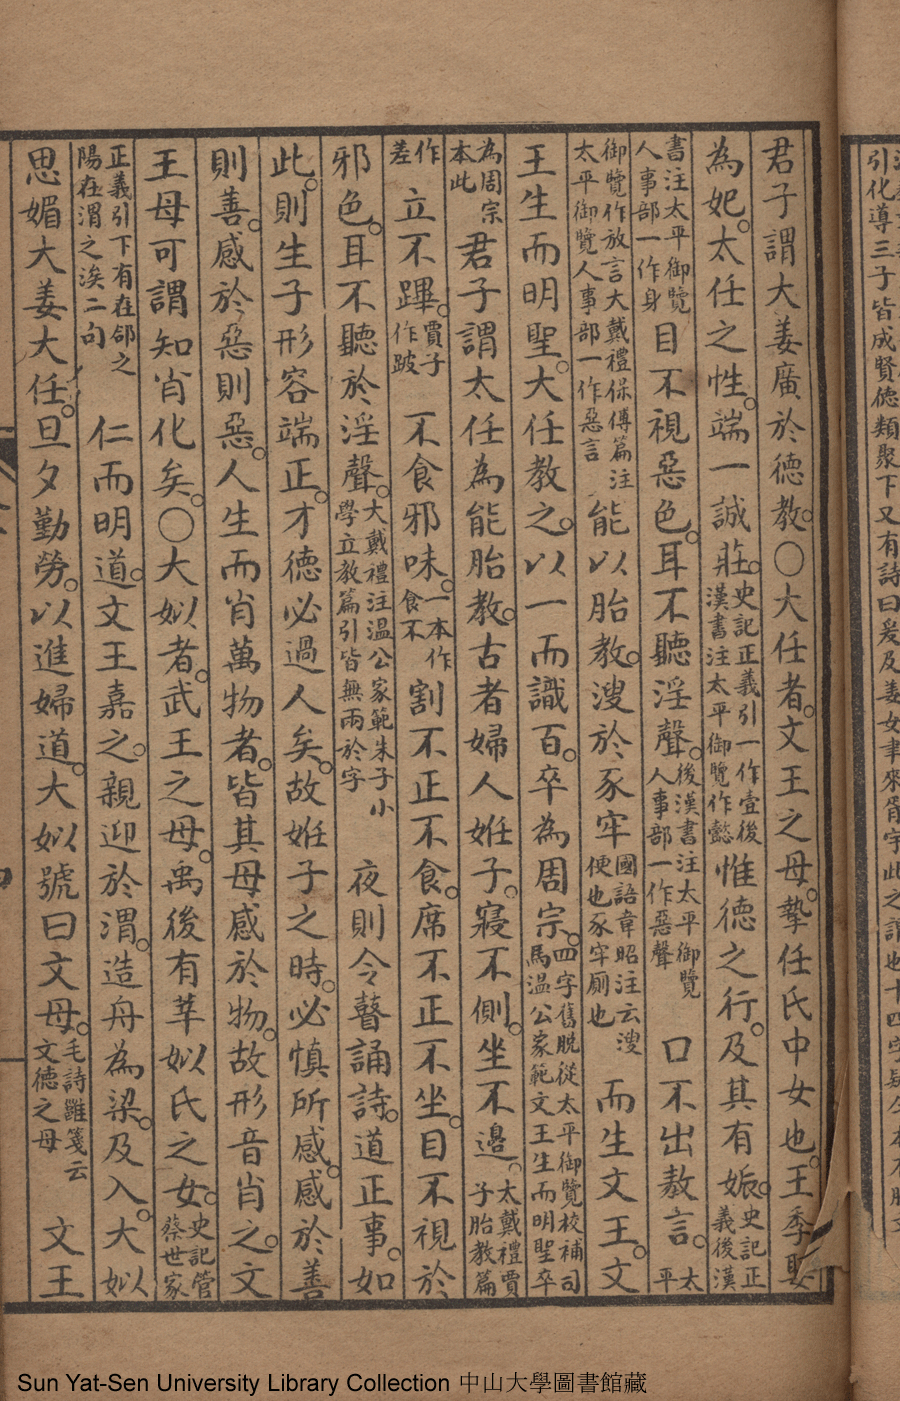 引化導三子皆成賢德類聚下又有詩曰爰及姜女聿來胥宇此之謂也十四字疑今本
君子謂大姜廣於德教。○大任者。文王之母。摯任氏中女也。王季娶
為妃。太任之性。端一誠莊。史記正義引一作壹後漢書注太平御覽作懿惟德之行。及其有娠。史記正義後漢
書注太平御覽人事部一作身目不視惡色。耳不聽淫聲。後漢書注太平御覽人事部一作惡聲口不出敖言。太平
御覽作放言大戴禮保傅篇注太平御覽人事部一作惡言能以胎教。溲於豕牢國語韋昭注云溲便也豕牢厠也而生文王。文
王生而明聖。大任教之。以一而識百。卒為周宗。四字舊脫從太平御覽校補司馬溫公家範文王生而明聖卒
為周宗本此君子謂太任為能胎教。古者婦人姙子。寢不側。坐不邊。太戴禮賈子胎教篇
作差立不蹕。賈子作跛不食邪味。一本作食不割不正不食。席不正不坐。目不視於
邪色。耳不聽於淫聲。大戴禮注溫公家範朱子小學立教篇引皆無兩於字夜則令瞽誦詩。道正事。如
此。則生子形容端正。才德必過人矣。故姙子之時。必慎所感。感於善
則善。感於惡則惡。人生而肖萬物者。皆其母感於物。故形音肖之。文
王母可謂知肖化矣。○大姒者。武王之母。禹後有莘姒氏之女。史記管蔡世家
正義引下有在郃之陽在渭之涘二句仁而明道。文王嘉之。親迎於渭。造舟為梁。及入。大姒
思媚大姜大任。旦夕勤勞。以進婦道。大姒號曰文母。毛詩雝箋云文德之母文王
Sun Yat-Sen University Library Collection 中山大學圖書館藏